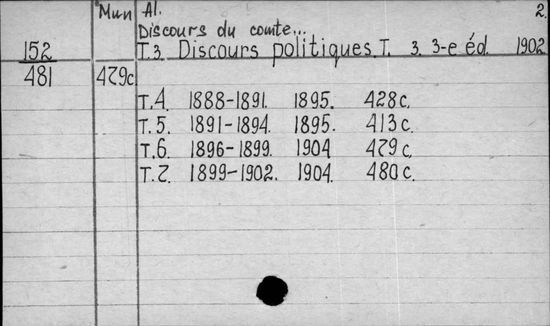 Mun Al. 2.
Discours du comte...
152 T.3. Discours politiques. T. 3. 3-e éd. 1902
481 479c
T.4. 1888-1891. 1895. 428c.
T.5. 1891-1894. 1895. 413c.
T.6. 1896-1899. 1904 479c.
T.7. 1899-1902. 1904. 480c.